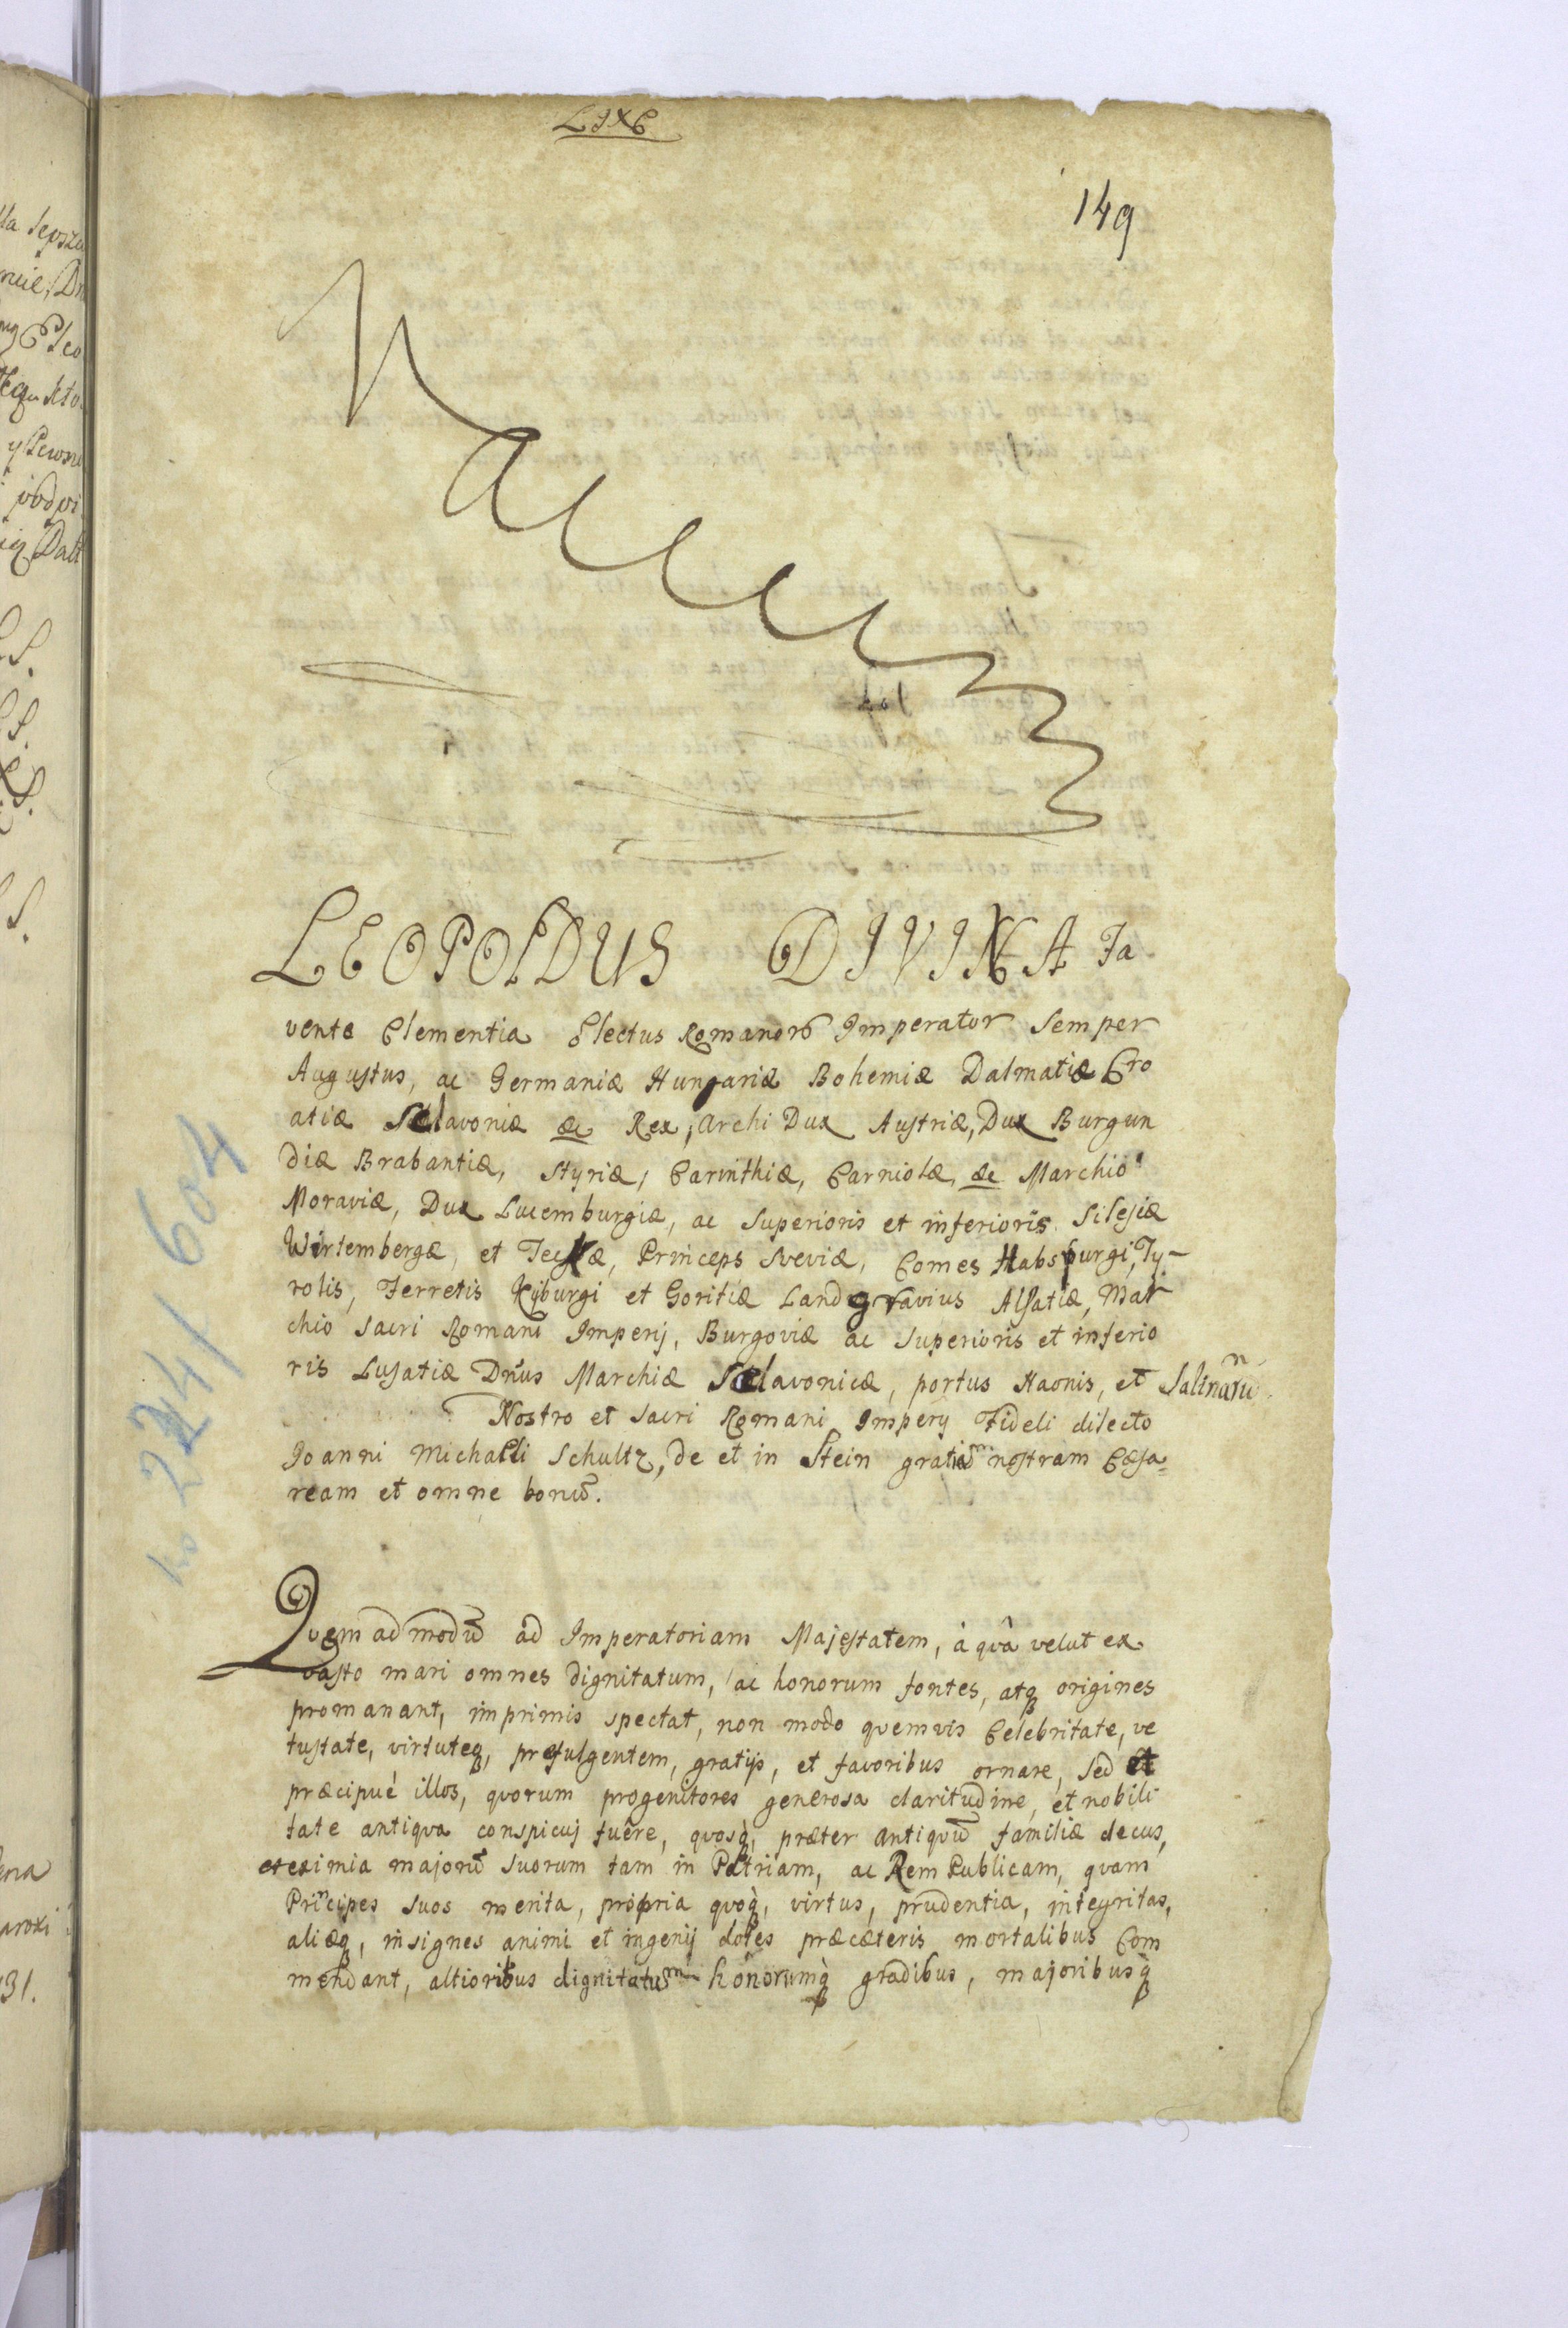 149
LEOPOLDUS DIVINA Fa
vente Clementia Electus Romanorũ Imperator Semper
Augustus, ac Germaniæ Hungariæ Bohemiæ Dalmatiæ Cro
atiæ Sclavoniæ &c Rex, Archi Dux Austriæ, Dux Burgun
diæ Brabantiæ, Styriæ, Carinthiæ, Carniolæ, &c Marchio
Moraviæ, Dux Lucemburgiæ, ac Superioris et inferioris Silesiæ
Wirtembergæ, et Teckæ, Princeps Sveviæ, Comes Habspurgi, Ty-
rolis, Ferretis Kÿburgi et Goritiæ Landgravius Alsatiæ, Mar
chio Sacri Romani Imperij, Burgoviæ ac Superioris et inferio
ris Lusatiæ Dnus Marchiæ Sclavonicæ, portus Haonis, et Salinarũ
Nostro et Sacri Romani Imperij Fideli dilecto
Joanni Michaeli Schultz, de et in Stein gratiam nostram Cæsa=
ream et omne bonũ.
Quemadmodũ ad Imperatoriam Majestatem, à quâ velut ex
vasto mari omnes dignitatum, ac honorum fontes, atq origines
promanant, imprimis spectat, non modo quemvis Celebritate, ve
tustate, virtuteq, prefulgentem, gratijs, et favoribus ornare, sed et
præcipué illos, quorum progenitores generosa claritudine, et nobili
tate antiqua conspicuj fuêre, quosq, præter antiquũ familiæ decus,
et eximia majorũ suorum tam in Patriam, ac Rem Publicam, quam
Principes suos merita, propria quoq, virtus, prudentia, integritas,
aliæq, insignes animi et ingenij dotes præ cæteris mortalibus Com
mendant, altioribus dignitatum honorumq gradibus, majoribusq
no 2241/604